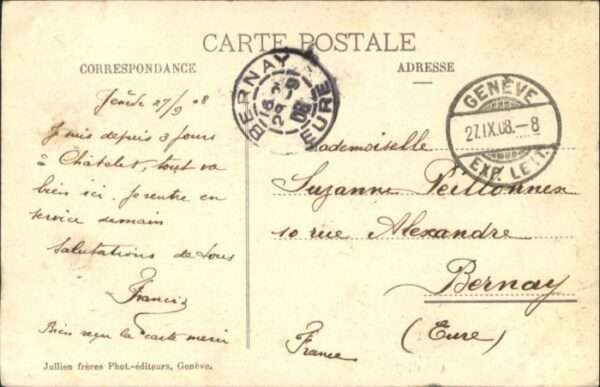 CARTE POSTALE
CORRESPONDANCE
ADRESSE
27/9 08
Je suis depuis 3 jours
à Châtelet, tout va
bien ici. Je rentre en
service demain
Salutations de tous
Francis
Bien reçu la carte merci
Jullien frères Phot.-éditeurs, Genève.
BERNAY
EURE
GENÈVE
27.IX.08.-8
EXP. LETT.
Mademoiselle
Suzanne Peillonnex
10 rue Alexandre
Bernay
(Eure)
France